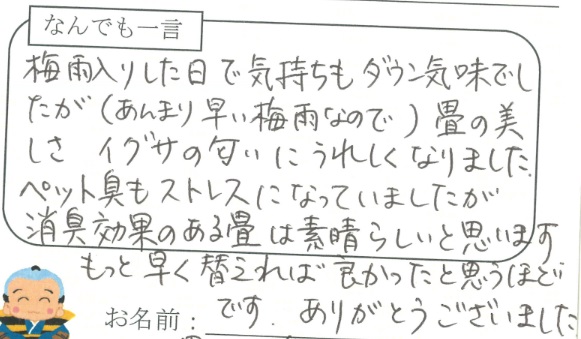 なんでも一言
梅雨入りした日で気持ちもダウン気味でし
たが(あんまり早い梅雨なので)畳の美
しさ イグサの匂いにうれしくなりました.
ペット臭もストレスになっていましたが
消臭効果のある畳は素晴らしいと思います
もっと早く替えれば良かったと思うほど
お名前: です. ありがとうございました